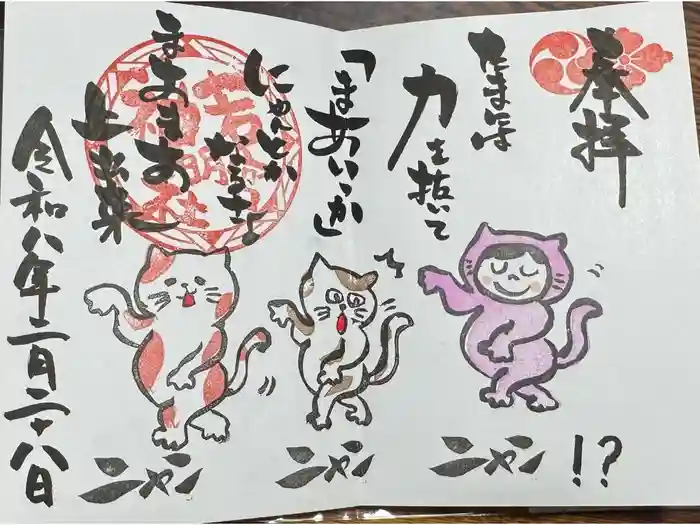 奉拝
たまには
力を抜いて
「まあいっか」
にゃんとか
なるさ♪
まあまあ
上出来
令和八年二月二十八日
ニャン
ニャン
ニャン!?